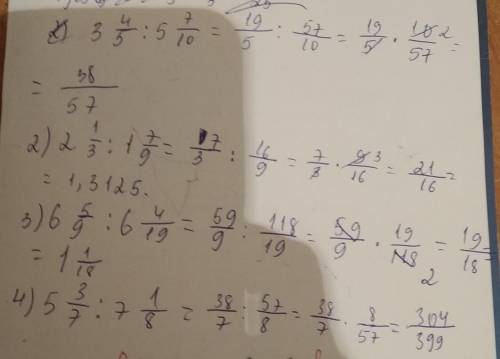 2) 3 4/5 : 5 7/10 = 19/5 : 57/10 = 19/5 · 10/57 2 =
= 38/57
2) 2 1/3 : 1 7/9 = 7/3 : 16/9 = 7/3 · 9/16 3 = 21/16 =
= 1,3125.
3) 6 5/9 : 6 4/19 = 59/9 : 118/19 = 59/9 · 19/118 2 = 19/18
= 1 1/18
4) 5 3/7 : 7 1/8 = 38/7 : 57/8 = 38/7 · 8/57 = 304/399